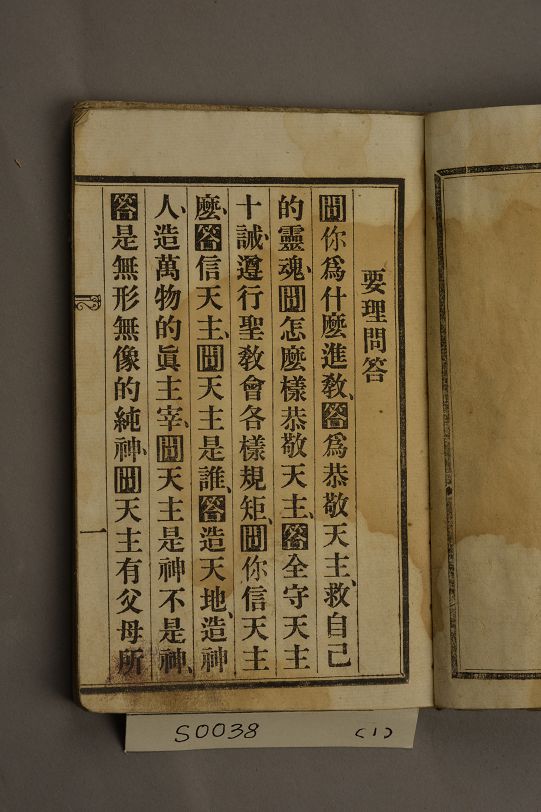 要理問答
問你爲什麽進敎、答爲恭敬天主、救自己
的靈魂、問怎麽樣恭敬天主、答全守天主
十誡、遵行聖敎會各樣規矩、問你信天主
麽、答信天主、問天主是誰、答造天地、造神
人、造萬物的眞主宰、問天主是神不是神、
答是無形無像的純神、問天主有父母所
一
S0038 (1)